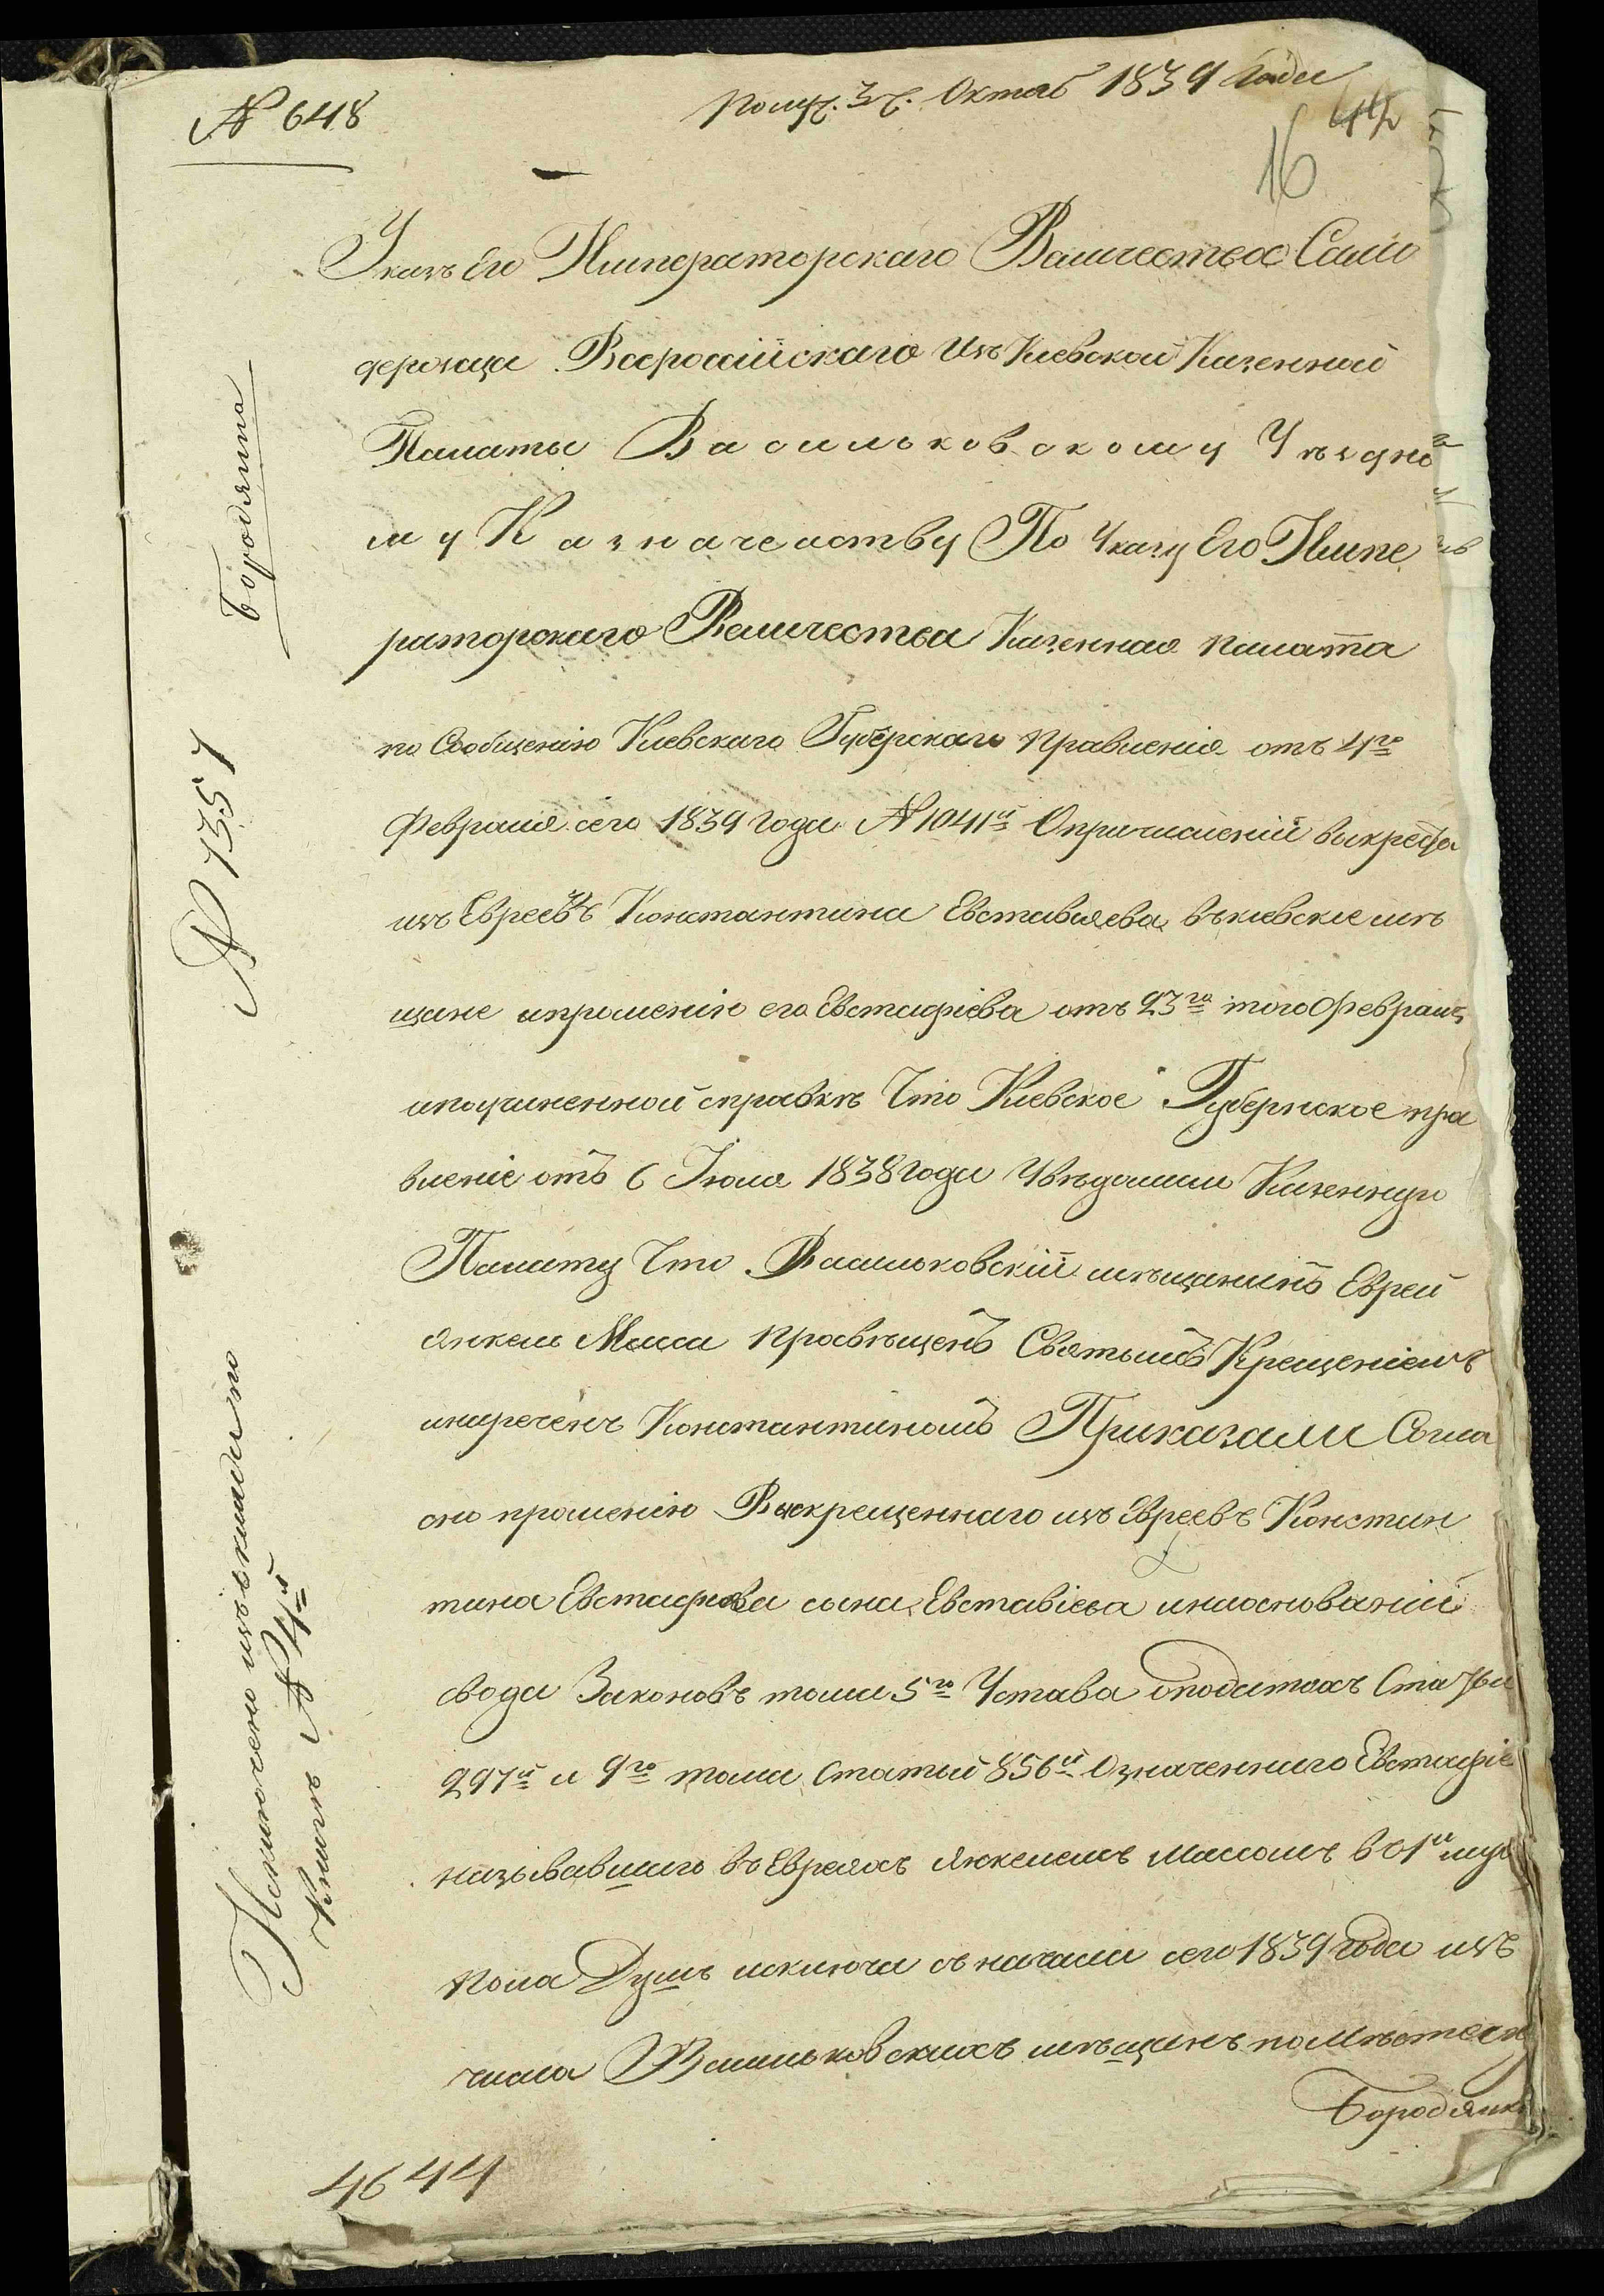 № 648
Получ. 3 ч. Октяб 1839 Года
16
Указъ Его Императорскаго Величества Само
держца Всероссійскаго Изъ Киевской Казенной
Палаты Васильковскому Уѣздно
му Казначейству По Указу Его Импе
раторскаго Величества Казенная палата
по Сообщенію Киевскаго Губерскаго Правленія отъ 4го
Февраля сего 1839 Года № 1041й О причисленій выкреста
изъ Евреевъ Константина Евставіева въ киевские мѣ
щане и прошенію его Евстафіева отъ 23го того Февраля
и по учиненной справкѣ Что Киевское Губернское пра
вленіе отъ 6 Іюля 1838 Года Увѣдомило Казенную
Палату Что Васильковскій мѣщанинъ Еврей
Янкель Масса просвѣщенъ Святымъ Крещеніемъ
и нареченъ Константиномъ Приказали Согла
сно прошенію Выкрещеннаго изъ Евреевъ Констан
тина Евстафіева сына Евставіева и на основаній
свода Законовъ тома 5го Устава о податяхъ Статьи
297й и 9го тома Статьи 856й Означеннаго Евстафіе
называвшаго въ Евреяхъ Янкелемъ Массомъ въ 1й муж
пола Душѣ исключа съ начала сего 1839 года изъ
числа Васильковскихъ мѣщанъ по Мѣстечк
Бородянк
4644
Бородянка
№ 1357
Исключено изъ оклада по
Книгѣ № 4й